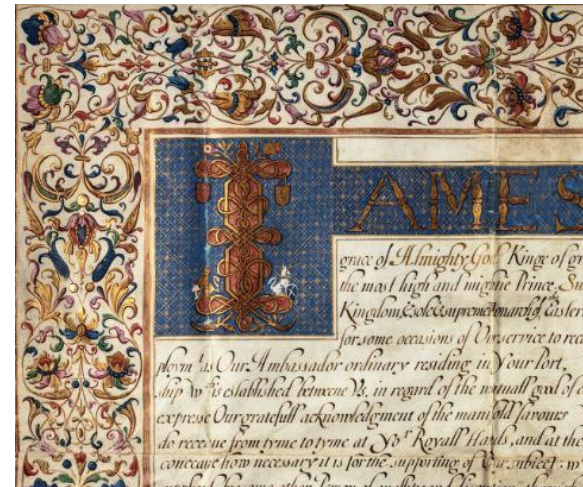 IAMES
grace of Almighty God Kinge of gr
the most high and mightie Prince, Su
Kingdom, & sole & supreme Monarch of Eastern
for some occasions of Our service to rec
ploym.t as Our Ambassador ordinary residing in Your Port,
ship w.ch is established betweene Us, in regard of the mutuall good of o
expresse Our gratefull acknowledgment of the manifold favours
do receave from tyme to tyme at Yo.r Royall Hands, and at the
conceave how necessary it is for the supporting of Our subiect